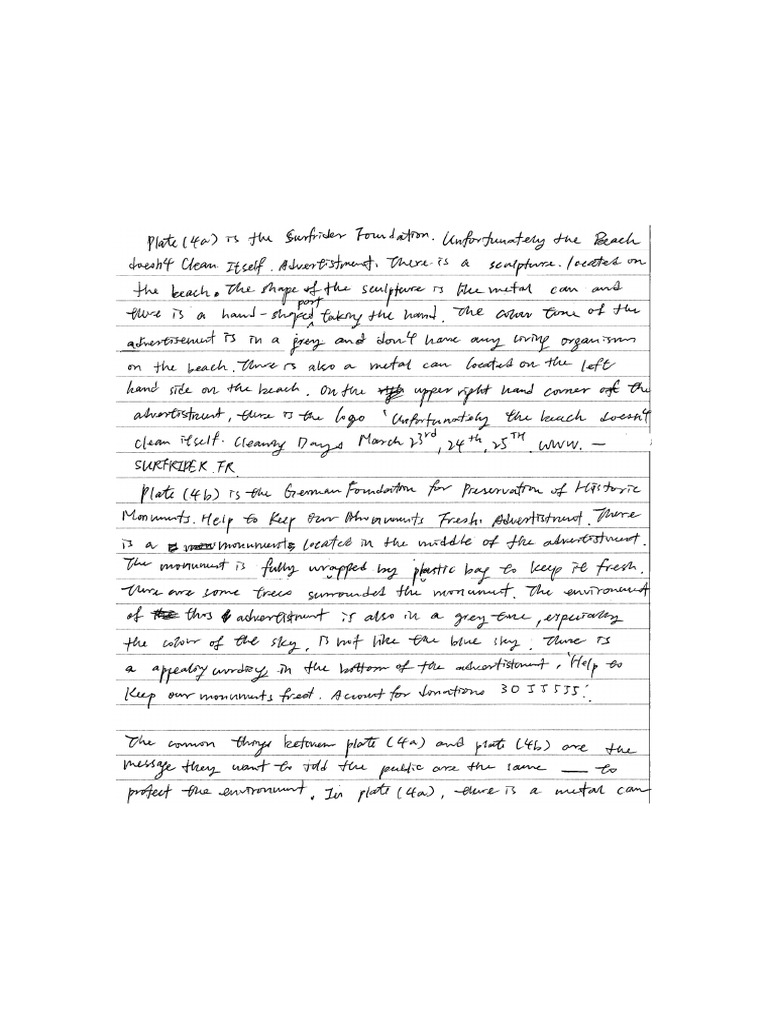 Plate (4a) is the Surfrider Foundation. Unfortunately the Beach
doesn't Clean Itself. Advertistment. There is a sculpture. located on
the beach. The shape of the sculpture is like metal can and
there is a hand-shaped part taking the hand. The colour tone of the
advertisement is in a grey and don't have any living organism
on the beach. There is also a metal can located on the left
hand side on the beach. On the upper right hand corner of the
advertistment, there is the logo 'Unfortunately the beach doesn't
clean itself. Cleaning Days March 23rd, 24th, 25TH. WWW. —
SURFRIDER.FR.
Plate (4b) is the German Foundation for Preservation of Historic
Monuments. Help to Keep Our Monuments Fresh. Advertistment. There
is a monument located in the middle of the advertistment.
The monument is fully wrapped by plastic bag to keep it fresh.
There are some trees surrounded the monument. The environment
of this advertistment is also in a grey tone, especially
the colour of the sky, is not like the blue sky. There is
a appealing wording in the bottom of the advertistment, 'Help to
Keep our monuments fresh. Account for donations 30 55555'.
The common things between plate (4a) and plate (4b) are the
message they want to told the public are the same — to
protect the environment. In plate (4a), there is a metal can